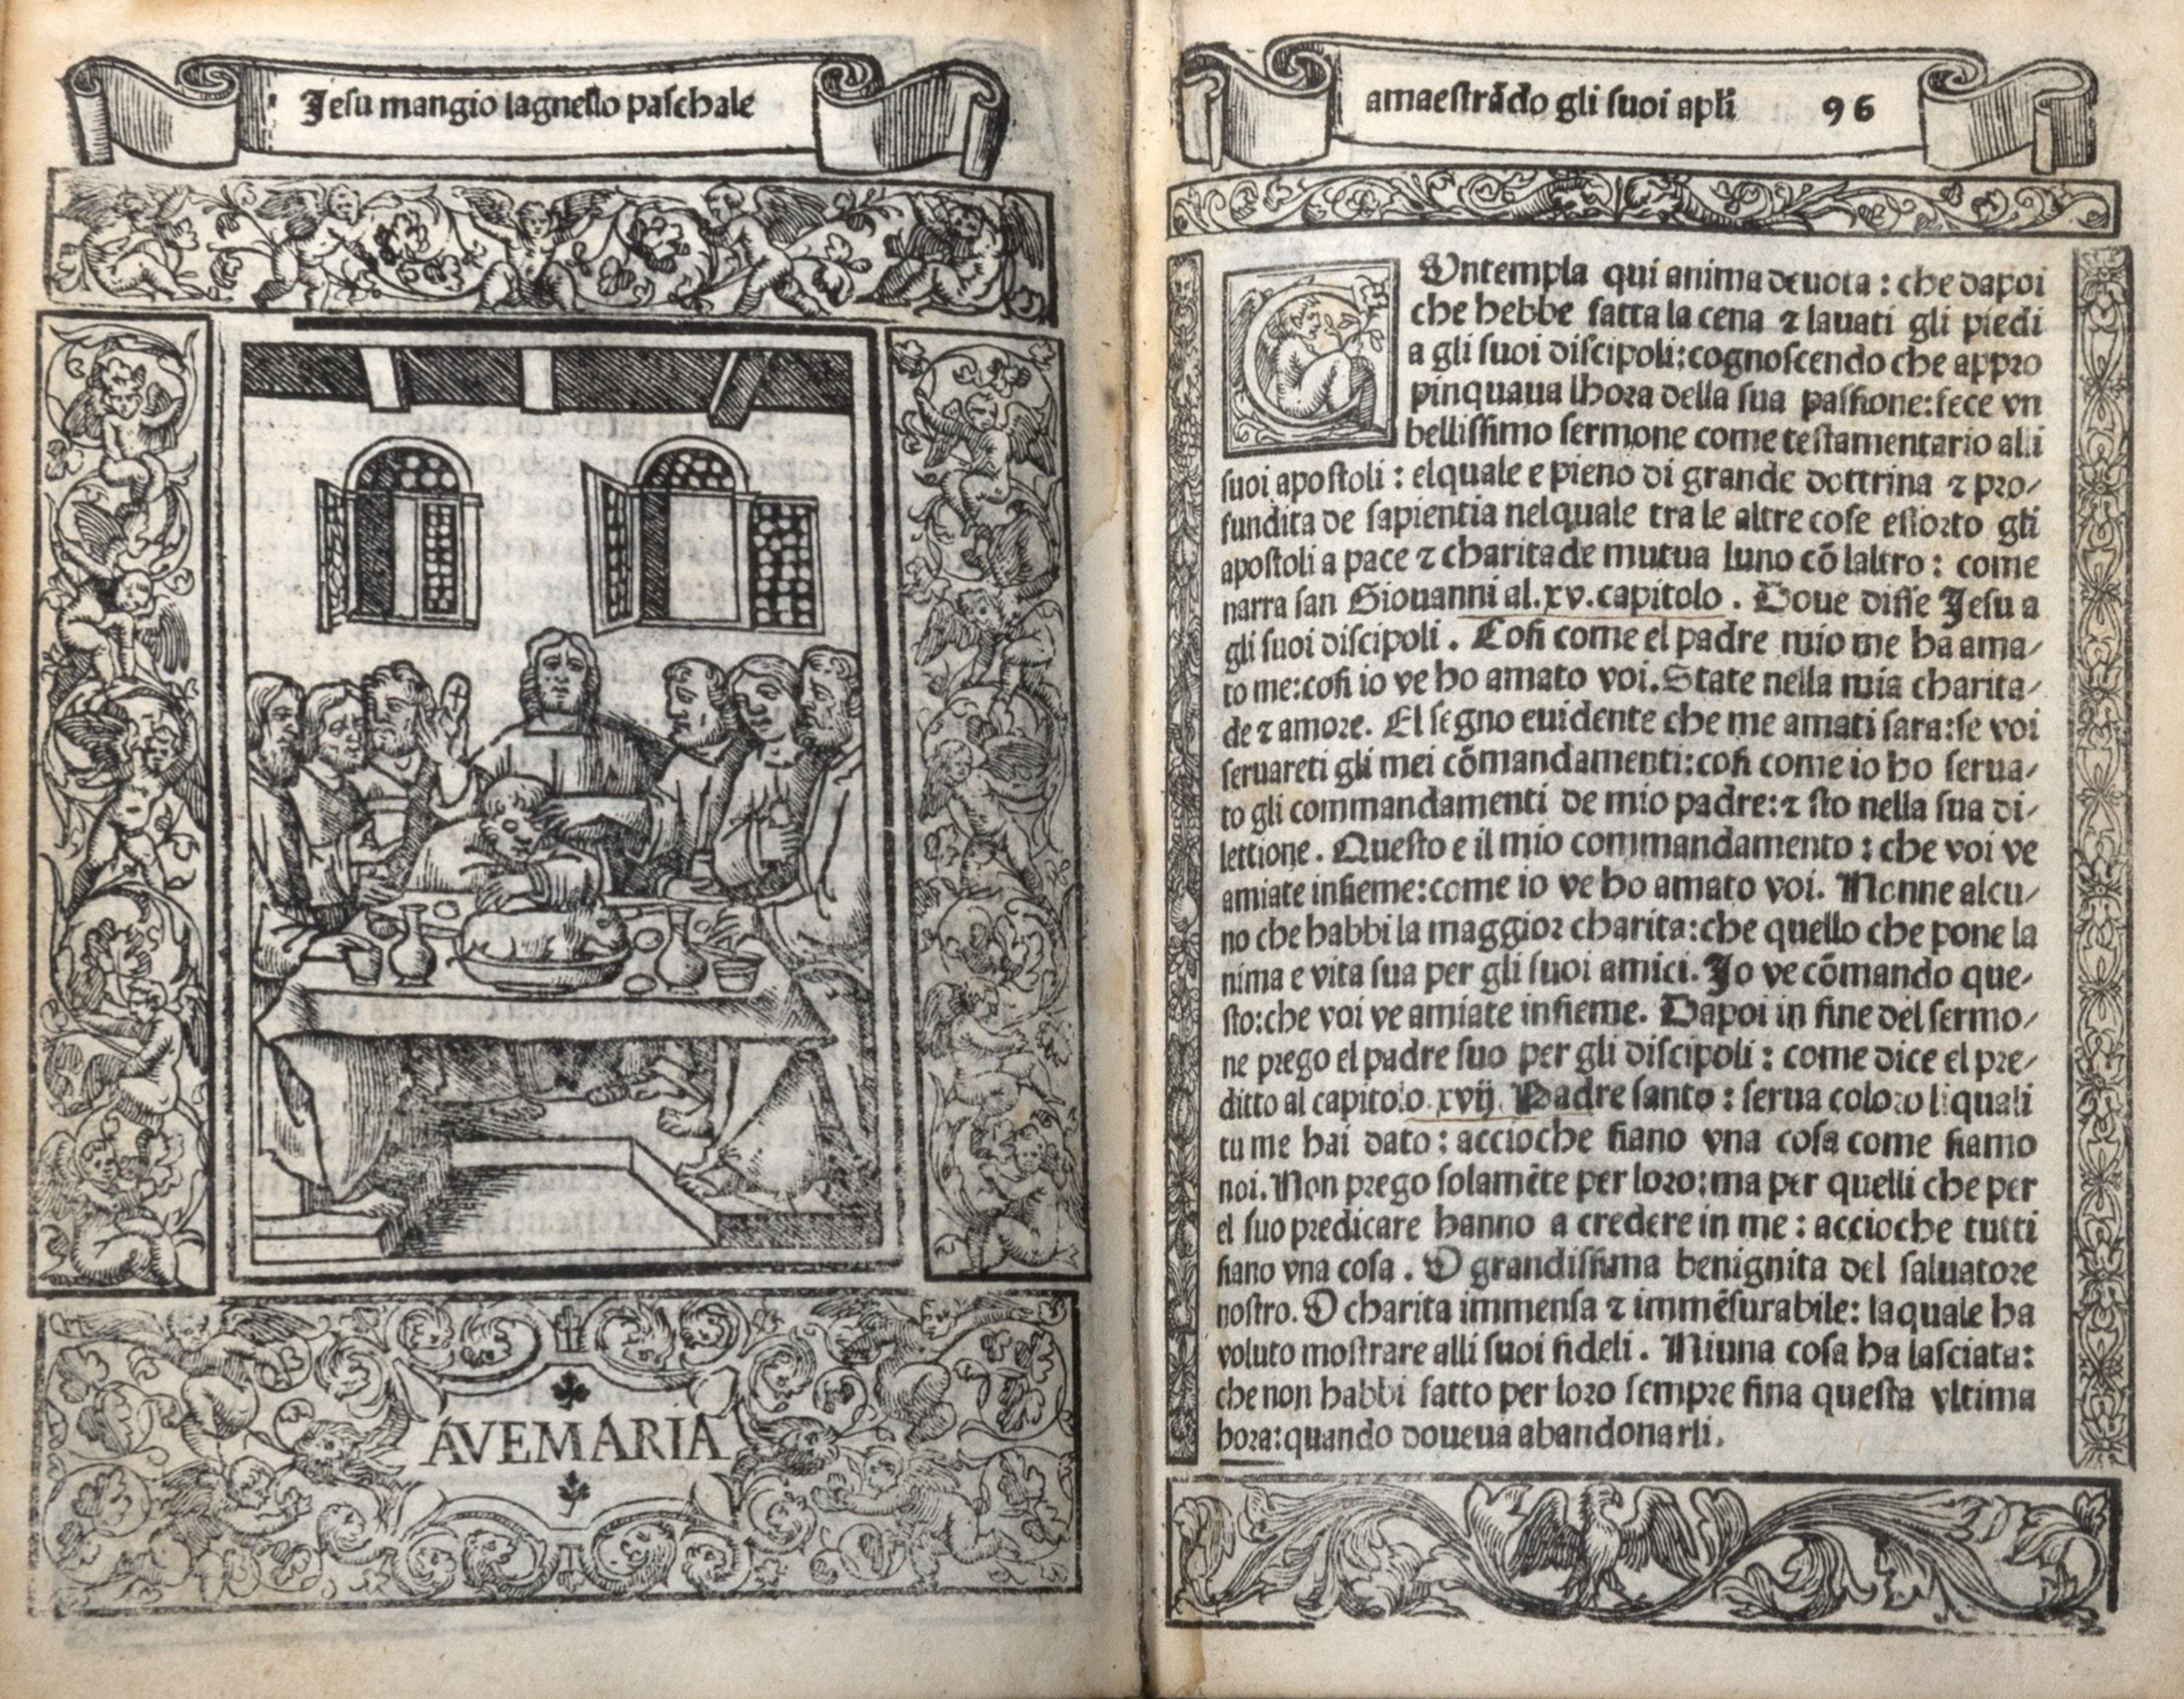 Jesu mangio lagnello paschale
AVEMARIA
amaestrãdo gli suoi apľi 96
COntempla qui anima deuota : che dapoi
che hebbe fatta la cena ⁊ lauati gli piedi
a gli suoi discipoli:cognoscendo che appro
pinquaua lhora della sua passione:fece vn
bellissimo sermone come testamentario alli
suoi apostoli : elquale e pieno di grande dottrina ⁊ pro-
fundita de sapientia nelquale tra le altre cose essorto gli
apostoli a pace ⁊ charitade mutua luno cõ laltro : come
narra san Giouanni al.xv.capitolo . Doue disse Jesu a
gli suoi discipoli . Cosi come el padre mio me ha ama-
to me:cosi io ve ho amato voi.State nella mia charita-
de ⁊ amore. El segno euidente che me amati sara:se voi
seruareti gli mei cõmandamenti:cosi come io ho serua-
to gli commandamenti de mio padre:⁊ sto nella sua di-
lettione. Questo e il mio commandamento : che voi ve
amiate insieme:come io ve ho amato voi. Nonne alcu-
no che habbi la maggior charita:che quello che pone la
nima e vita sua per gli suoi amici. Jo ve cõmando que-
sto:che voi ve amiate insieme. Dapoi in fine del sermo-
ne prego el padre suo per gli discipoli : come dice el pre-
ditto al capitolo xvij. Padre santo : serua coloro liquali
tu me hai dato : accioche siano vna cosa come siamo
noi. Non prego solamẽte per loro:ma per quelli che per
el suo predicare hanno a credere in me : accioche tutti
siano vna cosa . O grandissima benignita del saluatore
nostro. O charita immensa ⁊ immẽsurabile: laquale ha
voluto mostrare alli suoi fideli . Niuna cosa ha lasciata:
che non habbi fatto per loro sempre fina questa vltima
hora:quando doueua abandonarli.